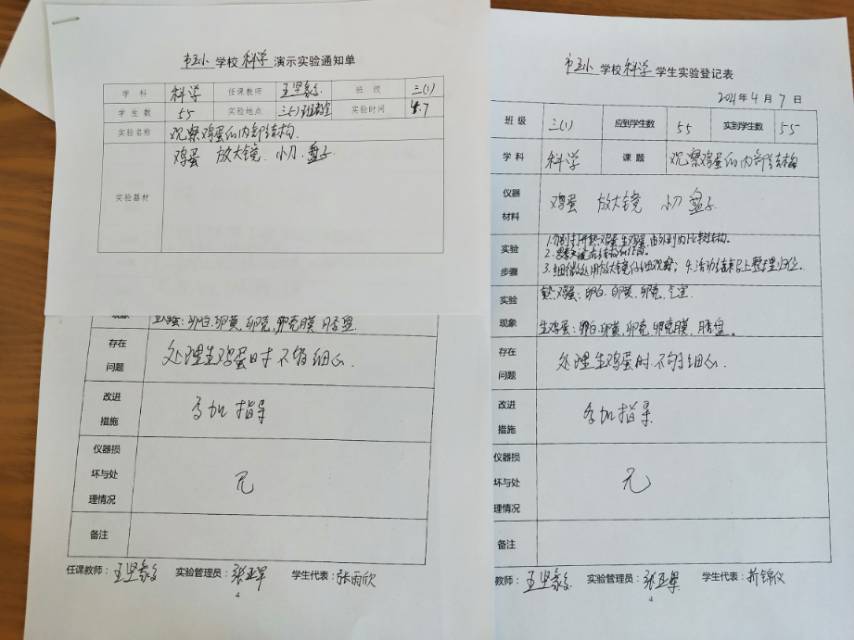 市五小 学校 科学 演示实验通知单
学科 科学 任课教师 班级 三(1)
学生数 55 实验地点 三(1)班教室 实验时间 4.7
实验名称 观察鸡蛋的内部结构.
实验器材 鸡蛋 放大镜 小刀 盘子
现象 生鸡蛋:卵白、卵黄、卵壳、卵壳膜、胚盘
存在问题 处理生鸡蛋时不够细心.
改进措施 多加指导
仪器损坏与处理情况 无
备注
任课教师: 实验管理员: 学生代表:张雨欣
市五小 学校 科学 学生实验登记表
2021年4月7日
班级 三(1) 应到学生数 55 实到学生数 55
学科 科学 课题 观察鸡蛋的内部结构
仪器材料 鸡蛋 放大镜 小刀 盘子
实验步骤
实验现象 熟鸡蛋:卵白、卵黄、卵壳、气室
生鸡蛋:卵白、卵黄、卵壳、卵壳膜、胚盘.
存在问题 处理生鸡蛋时不够细心.
改进措施 多加指导
仪器损坏与处理情况 无
备注
教师: 实验管理员: 学生代表: